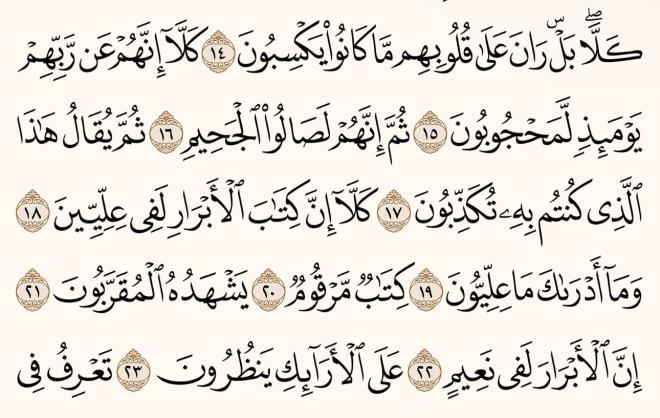 كَلَّاۖ بَلْۜ رَانَ عَلَىٰ قُلُوبِهِم مَّا كَانُوا۟ يَكْسِبُونَ ١٤ كَلَّآ إِنَّهُمْ عَن رَّبِّهِمْ
يَوْمَئِذٍ لَّمَحْجُوبُونَ ١٥ ثُمَّ إِنَّهُمْ لَصَالُوا۟ ٱلْجَحِيمِ ١٦ ثُمَّ يُقَالُ هَٰذَا
ٱلَّذِى كُنتُم بِهِۦ تُكَذِّبُونَ ١٧ كَلَّآ إِنَّ كِتَٰبَ ٱلْأَبْرَارِ لَفِى عِلِّيِّينَ ١٨
وَمَآ أَدْرَىٰكَ مَا عِلِّيُّونَ ١٩ كِتَٰبٌ مَّرْقُومٌ ٢٠ يَشْهَدُهُ ٱلْمُقَرَّبُونَ ٢١
إِنَّ ٱلْأَبْرَارَ لَفِى نَعِيمٍ ٢٢ عَلَى ٱلْأَرَآئِكِ يَنظُرُونَ ٢٣ تَعْرِفُ فِى